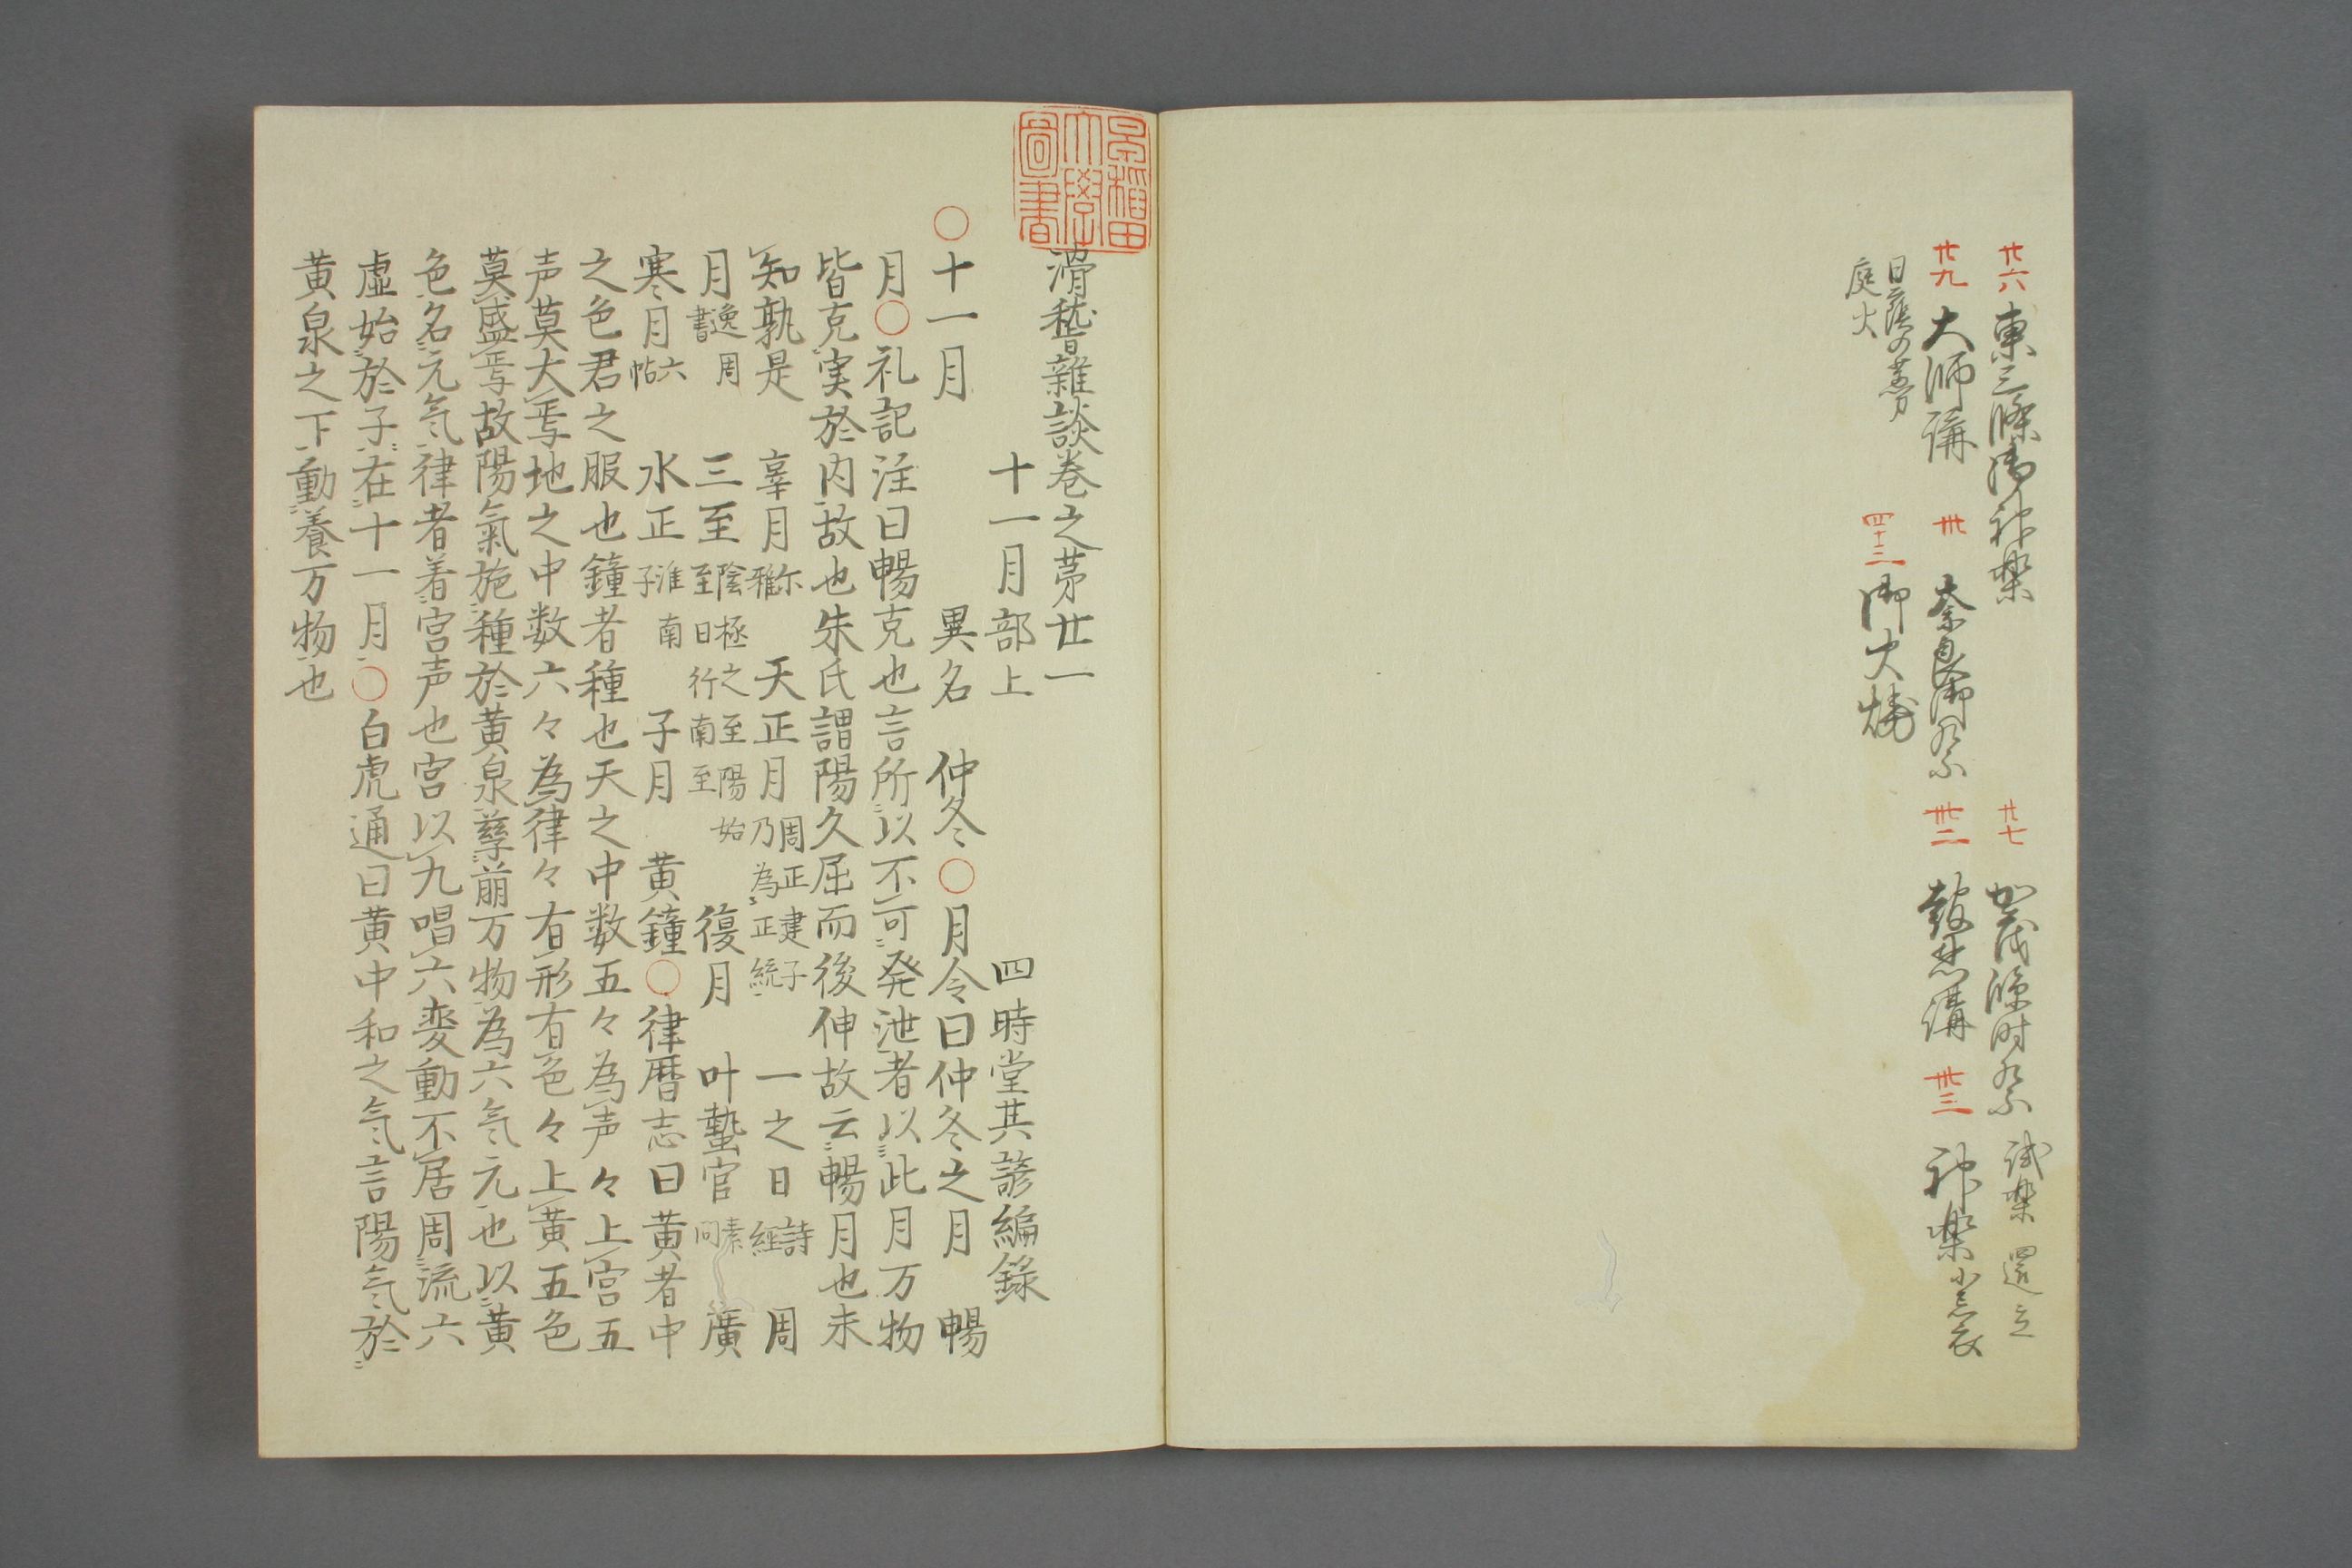 廿六 東三條御神楽 廿七 加茂臨时祭 試楽 還立
廿九 大師講 卅 奈良御祭 卅二 鼓悪講 卅三 神楽 小忌衣
庭火
四十三 御火焼
早稲田大學圖書
滑稽雜談巻之苐廿一
十一月部上 四時堂其諺編錄
〇十一月 異名 仲冬〇月令曰仲冬之月 暢
月〇礼記注曰暢充也言所以不可発泄者以此月万物
皆充実於内故也朱氏謂陽久屈而後伸故云暢月也未
知孰是 辜月尓雅 天正月周正建子乃為正統 一之日詩經 周
月逸周書 三至陰極之至陽始至日行南至 復月 叶蟄官素問 廣
寒月六帖 水正淮南子 子月 黄鐘〇律暦志曰黄者中
之色君之服也鐘者種也天之中数五々為声々上宮五
声莫大焉地之中数六々為律々有形有色々上黄五色
莫盛焉故陽氣施種於黄泉孳萠万物為六気元也以黄
色名元気律者着宮声也宮以九唱六変動不居周流六
虚始於子在十一月〇白虎通曰黄中和之気言陽気於
黄泉之下動養万物也